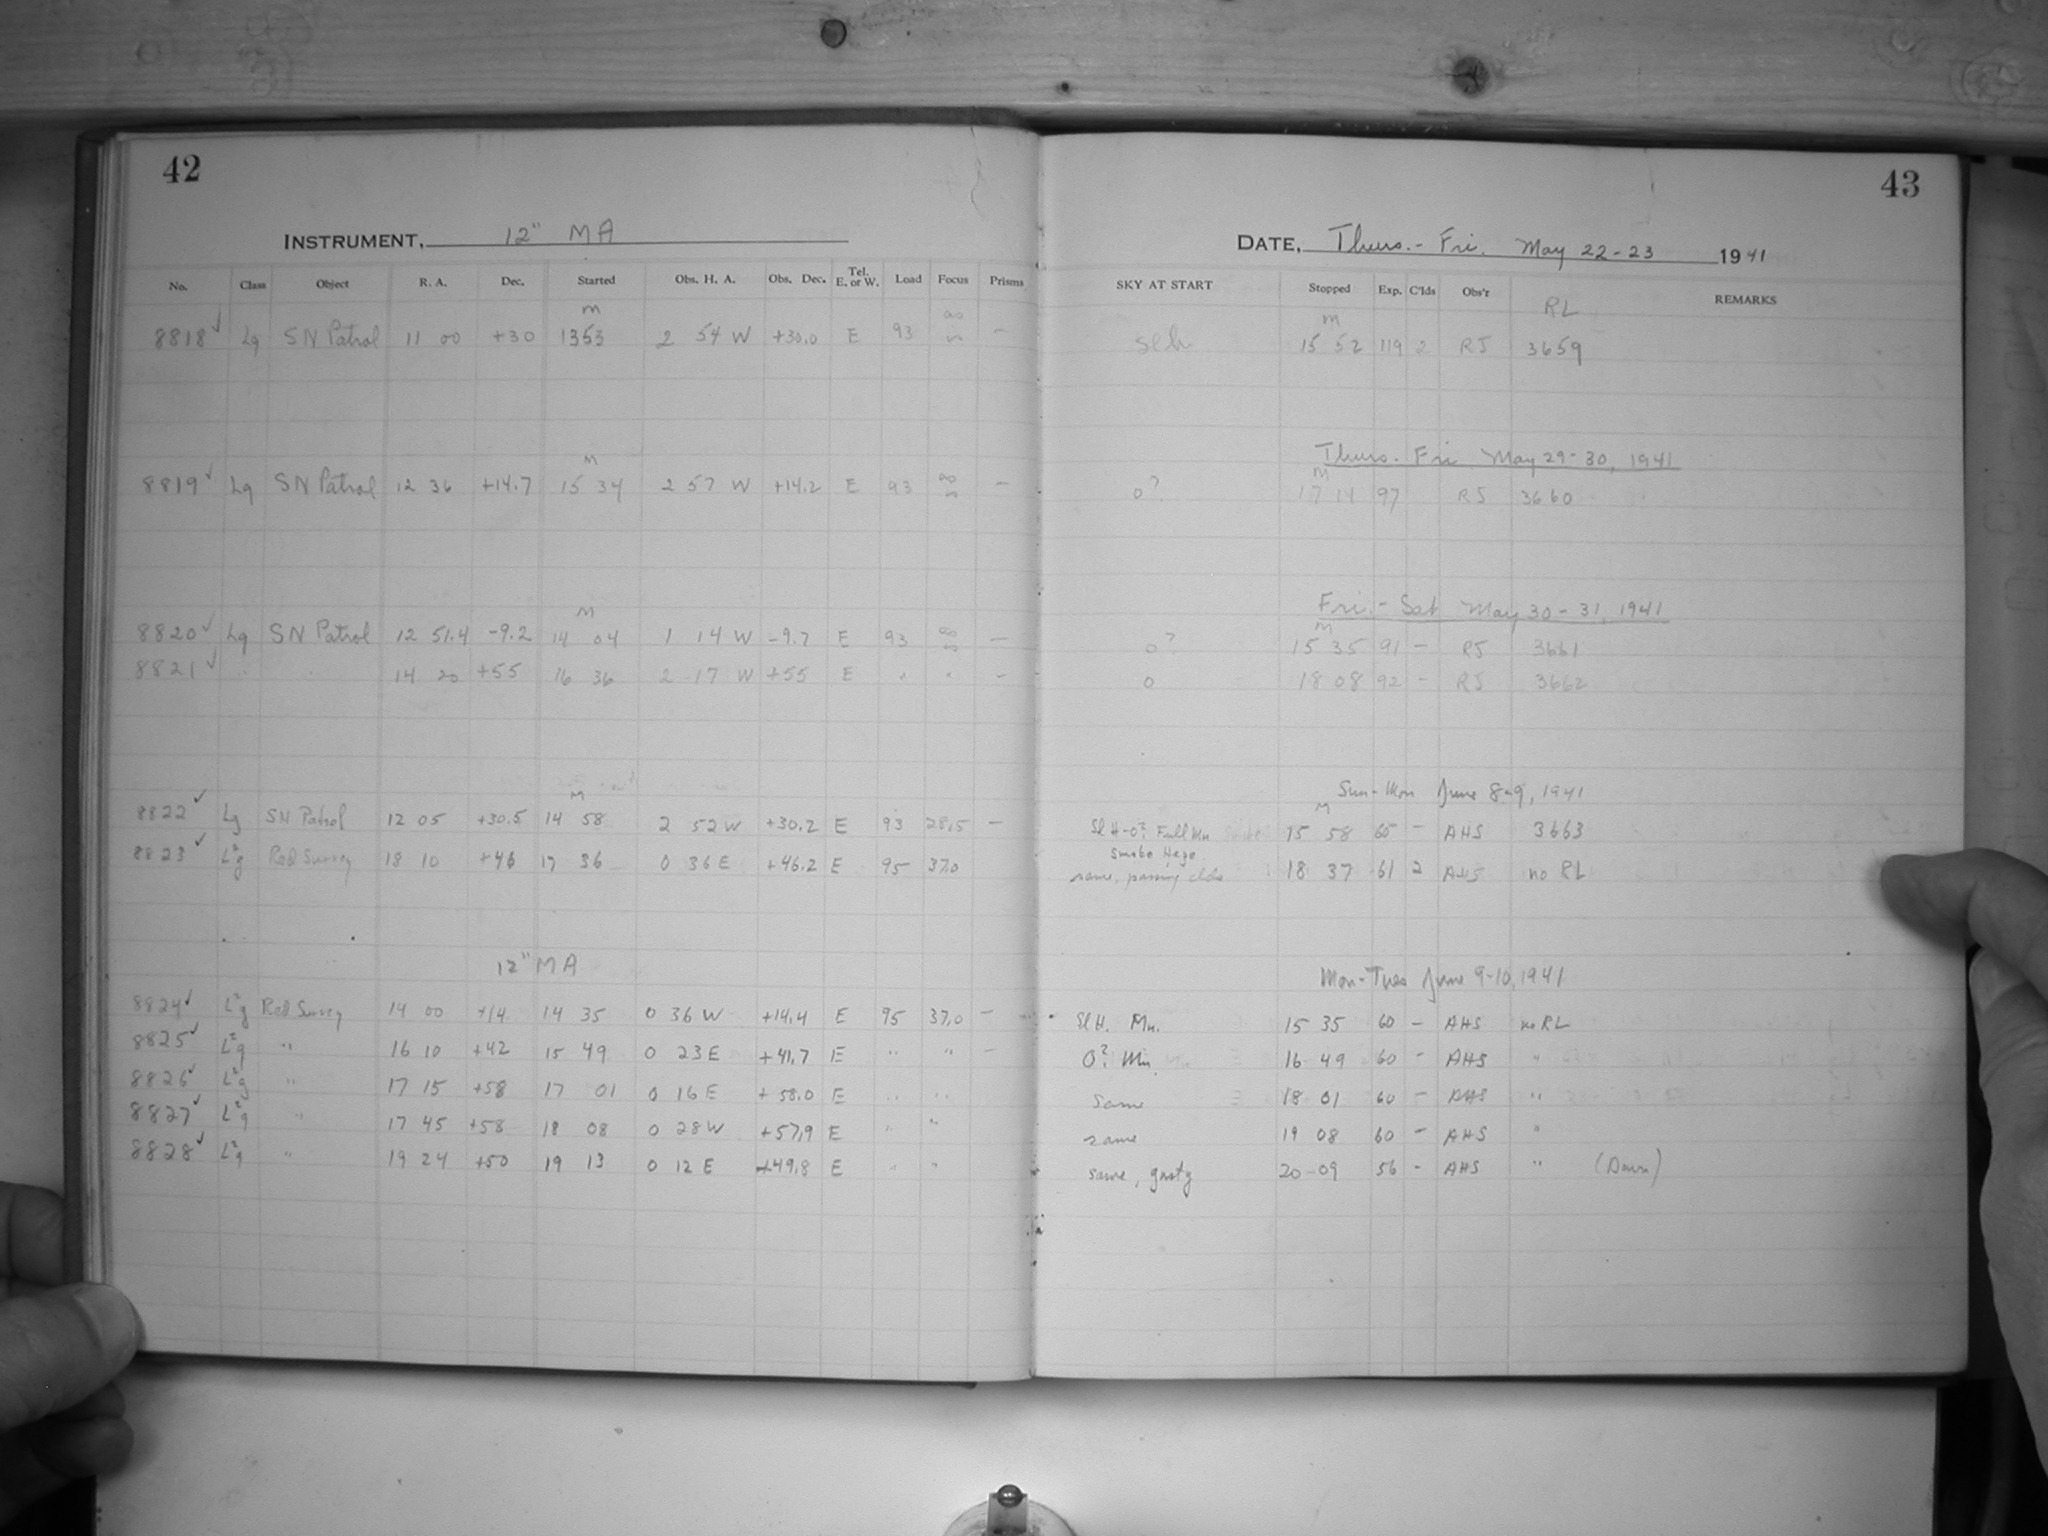 42
INSTRUMENT, 12" MA
No. Class Object R. A. Dec. Started Obs. H. A. Obs. Dec. Tel. E. or W. Load Focus Prisms
M
8818 ✓ Lg SN Patrol 11 00 +30 1353 2 54 W +30.0 E 93 —
M
8819 ✓ Lg SN Patrol 12 36 +14.7 15 34 2 57 W +14.2 E 93 —
M
8820 ✓ Lg SN Patrol 12 51.4 -9.2 14 04 1 14 W -9.7 E 93 —
8821 ✓ " " 14 20 +55 16 36 2 17 W +55 E " " —
M
8822 ✓ Lg SN Patrol 12 05 +30.5 14 58 2 52 W +30.2 E 93 28.5 —
8823 ✓ L²g Red Survey 18 10 +46 17 36 0 36 E +46.2 E 95 37.0
12" MA
8824 ✓ L²g Red Survey 14 00 +14 14 35 0 36 W +14.4 E 95 37.0 —
8825 ✓ L²g " 16 10 +42 15 49 0 23 E +41.7 E " " —
8826 ✓ L²g " 17 15 +58 17 01 0 16 E +58.0 E " "
8827 ✓ L²g " 17 45 +58 18 08 0 28 W +57.9 E " "
8828 ✓ L²g " 19 24 +50 19 13 0 12 E +49.8 E " "
43
DATE, Thurs.- Fri. May 22-23 1941
SKY AT START Stopped Exp. C'lds Obs'r RL REMARKS
M
slh 15 52 119 2 RJ 3659
Thurs. Fri May 29-30, 1941
M
0? 17 11 97 RJ 3660
Fri.- Sat May 30-31, 1941
M
0? 15 35 91 — RJ 3661
0 18 08 92 — RJ 3662
Sun-Mon June 8-9, 1941
M
Sl H-0? Full Mn 15 58 60 — AHS 3663
Smoke Haze
same, passing clds 18 37 61 2 AHS no RL
Mon-Tues June 9-10, 1941
Sl H. Mn. 15 35 60 — AHS no RL
0? Mn. 16 49 60 — AHS "
same 18 01 60 — AHS "
same 19 08 60 — AHS "
same, gusty 20-09 56 - AHS " (Dawn)